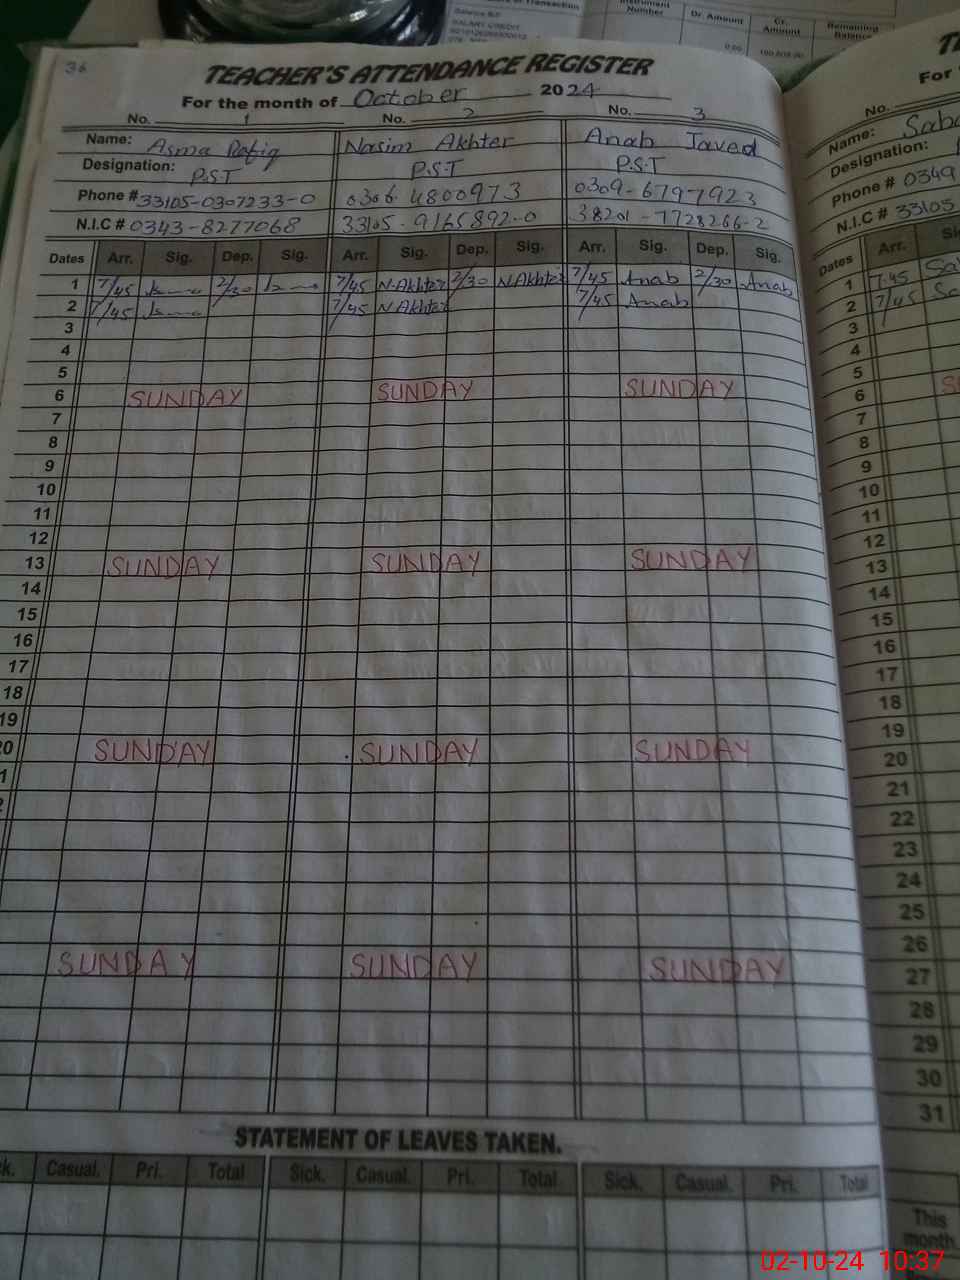 Instrument Number Dr. Amount Cr. Amount Remaining Balance
Transaction
SALARY CREDIT
0.00
36
TEACHER'S ATTENDANCE REGISTER
For the month of October 2024
No. 1 No. 2 No. 3
Name: Asma Rafiq Nasim Akhter Anab Javed
Designation: P.S.T P.S.T P.S.T
Phone # 33105-0307233-0 0306-4800973 0309-6797923
N.I.C # 0343-8277068 33105-9165892-0 38201-7728266-2
Dates Arr. Sig. Dep. Sig. Arr. Sig. Dep. Sig. Arr. Sig. Dep. Sig.
1 7/45 2/30 7/45 N.Akhter 2/30 N.Akhter 7/45 Anab 2/30 Anab
2 7/45 7/45 N.Akhter 7/45 Anab
3
4
5
6 SUNDAY SUNDAY SUNDAY
7
8
9
10
11
12
13 SUNDAY SUNDAY SUNDAY
14
15
16
17
18
19
20 SUNDAY SUNDAY SUNDAY
SUNDAY SUNDAY SUNDAY
STATEMENT OF LEAVES TAKEN.
Casual. Pri. Total Sick. Casual. Pri. Total Sick. Casual. Pri. Total
For
No.
Name: Saba
Designation:
Phone # 0349
N.I.C # 33105
Dates Arr.
1 7.45
2 7/45
3
4
5
6
7
8
9
10
11
12
13
14
15
16
17
18
19
20
21
22
23
24
25
26
27
28
29
30
31
This month.
02-10-24 10:37